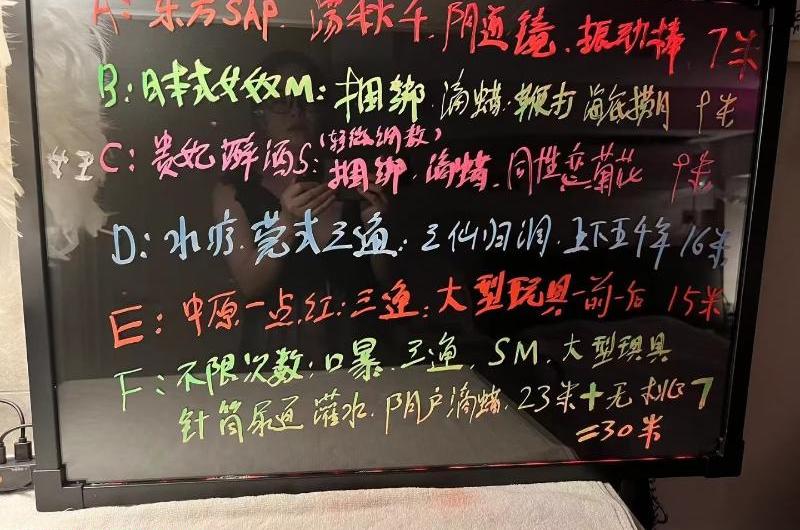 A: 东方SAP. 荡秋千. 阴道镜. 振动棒. 7米
B: 日本式女奴M: 捆绑. 滴蜡. 鞭打 海底捞月 9米
C: 贵妃醉酒S: (轻微调教) 捆绑. 滴蜡. 同性恋菊花 9米
D: 水疗. 莞式三通: 三仙归洞. 上下五千年 16米
E: 中原一点红: 三通: 大型玩具一前一后 15米
F: 不限次数: 口暴. 三通. SM. 大型玩具
针筒尿道灌水. 阴户滴蜡. 23米+无 7
=30米